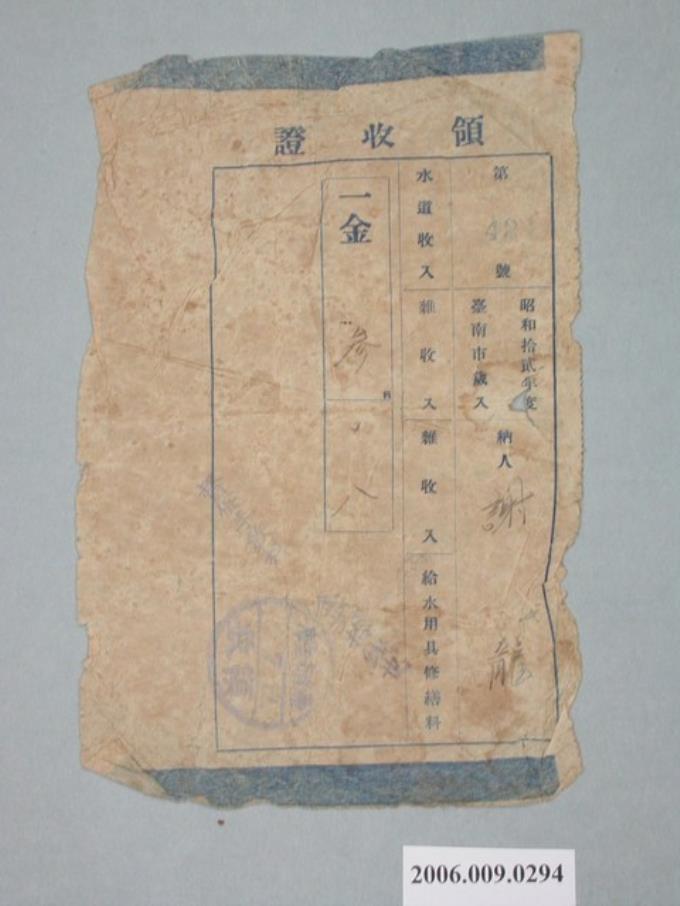 領收證
第 42 號
昭和拾貳年度
臺南市歲入
納人 謝 龍
水道收入
雜收入
雜收入
給水用具修繕料
一金 參 八
2006.009.0294